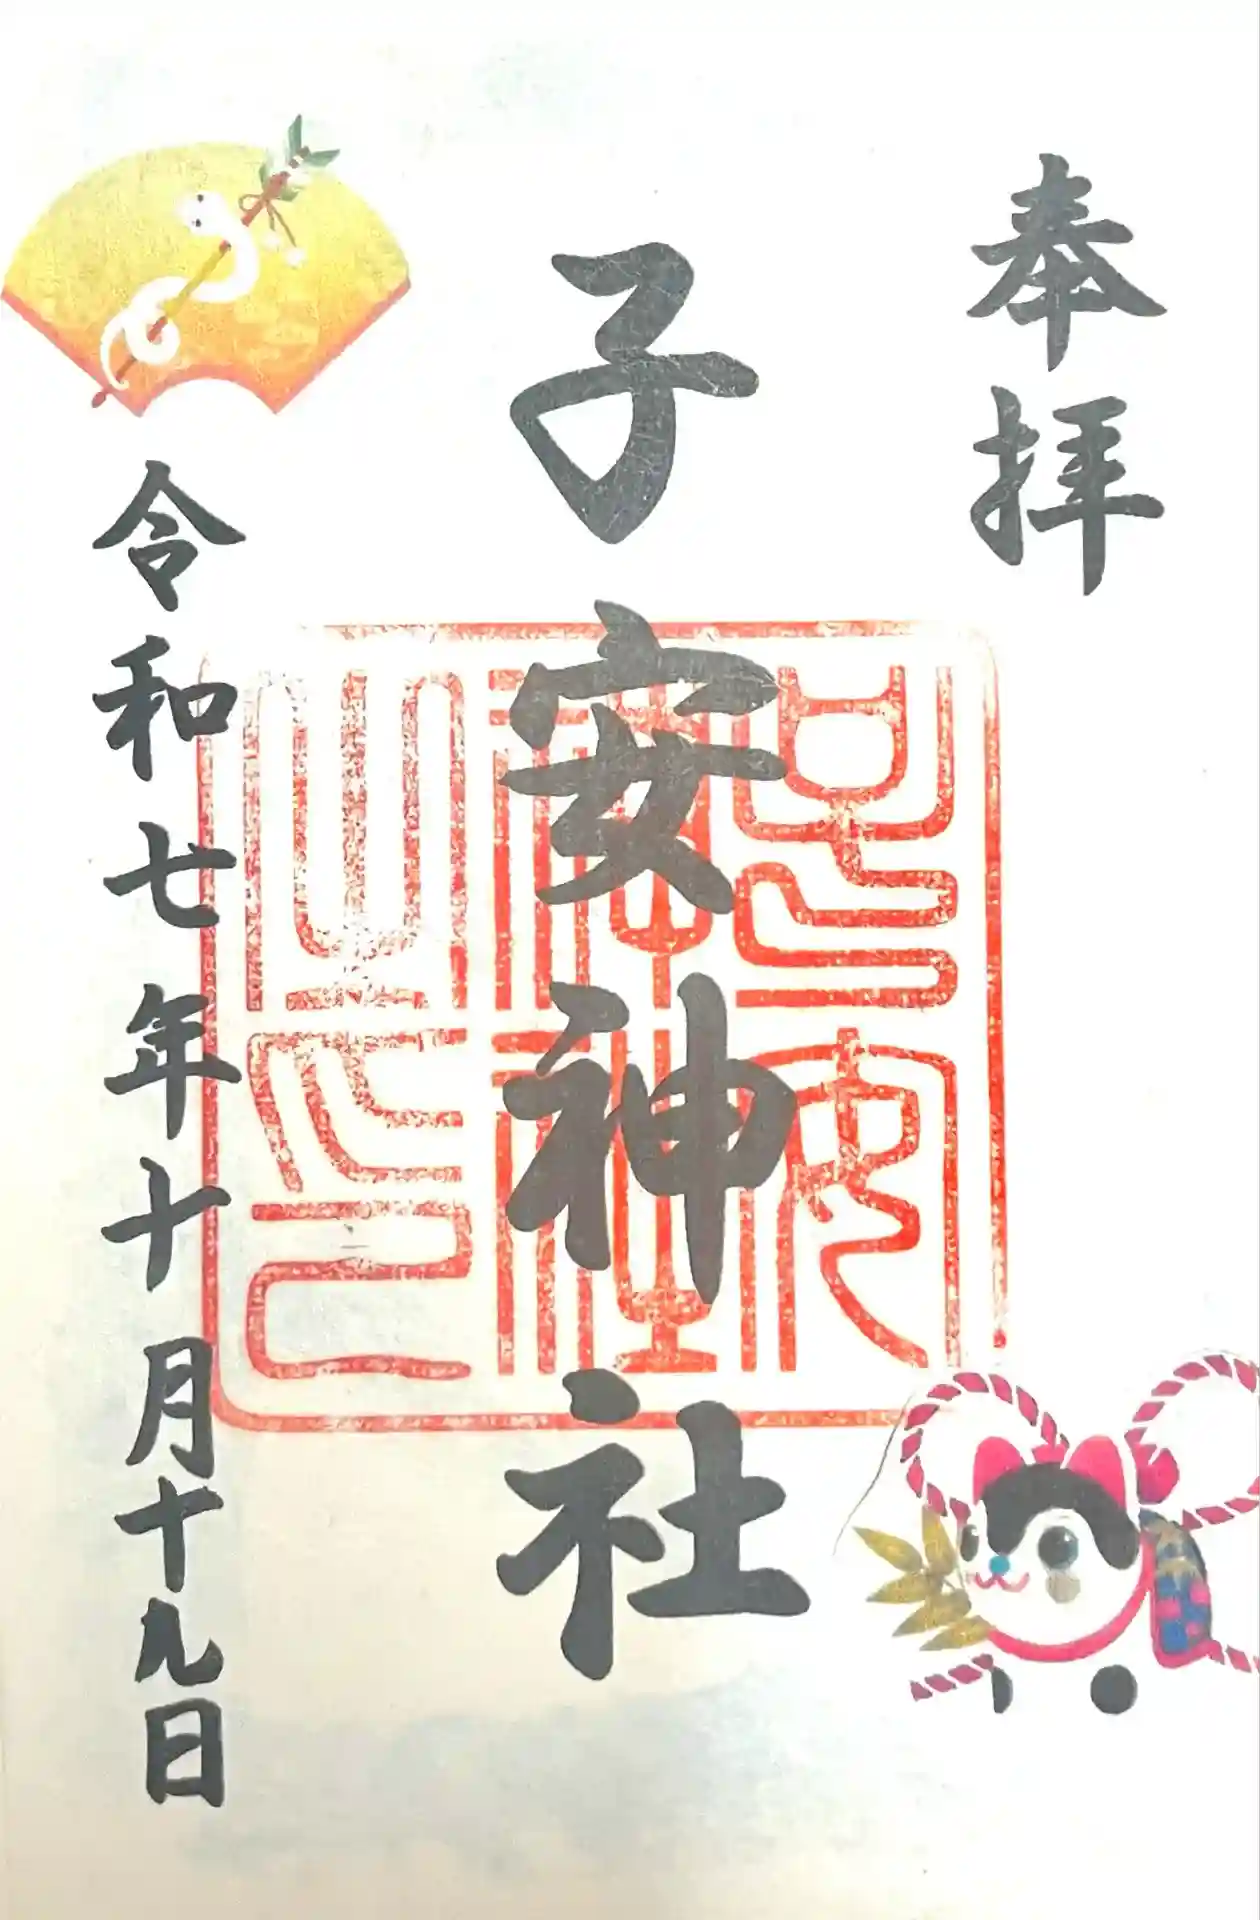 奉拝
子安神社
子安神社之印
令和七年十月十九日